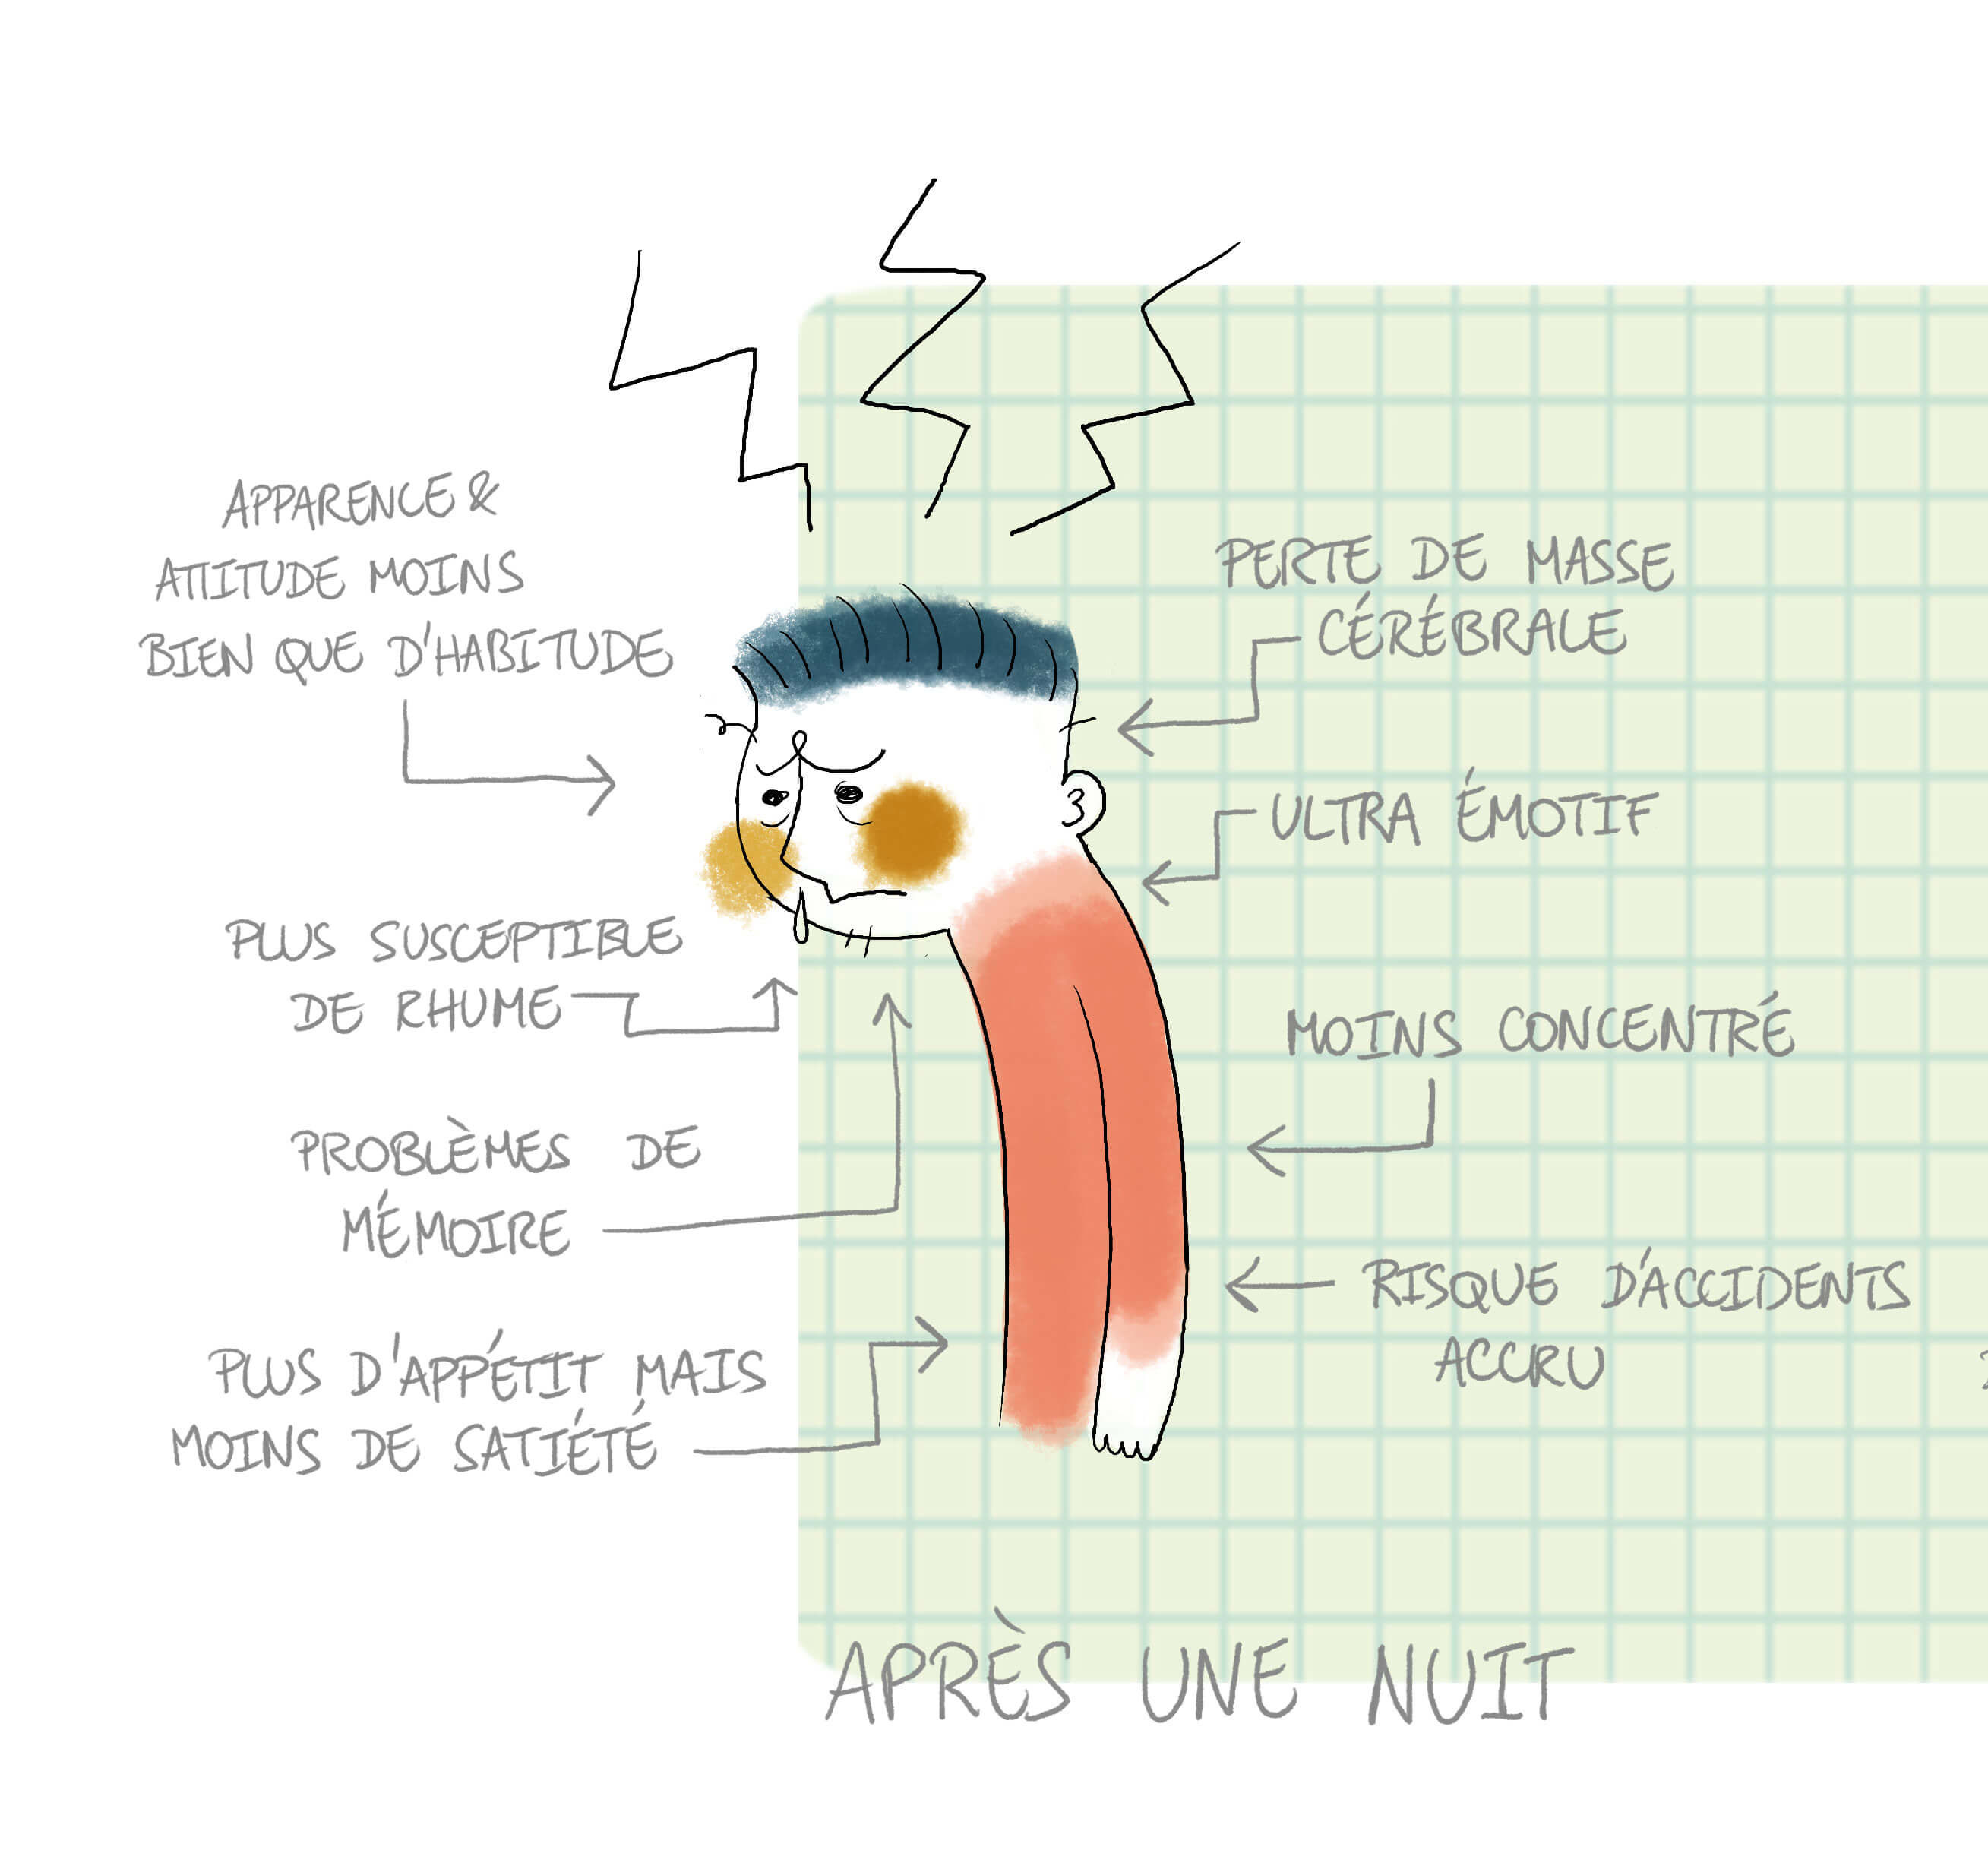 APPARENCE &
ATTITUDE MOINS
BIEN QUE D'HABITUDE
PLUS SUSCEPTIBLE
DE RHUME
PROBLÈMES DE
MÉMOIRE
PLUS D'APPÉTIT MAIS
MOINS DE SATIÉTÉ
PERTE DE MASSE
CÉRÉBRALE
ULTRA ÉMOTIF
MOINS CONCENTRÉ
RISQUE D'ACCIDENTS
ACCRU
APRÈS UNE NUIT